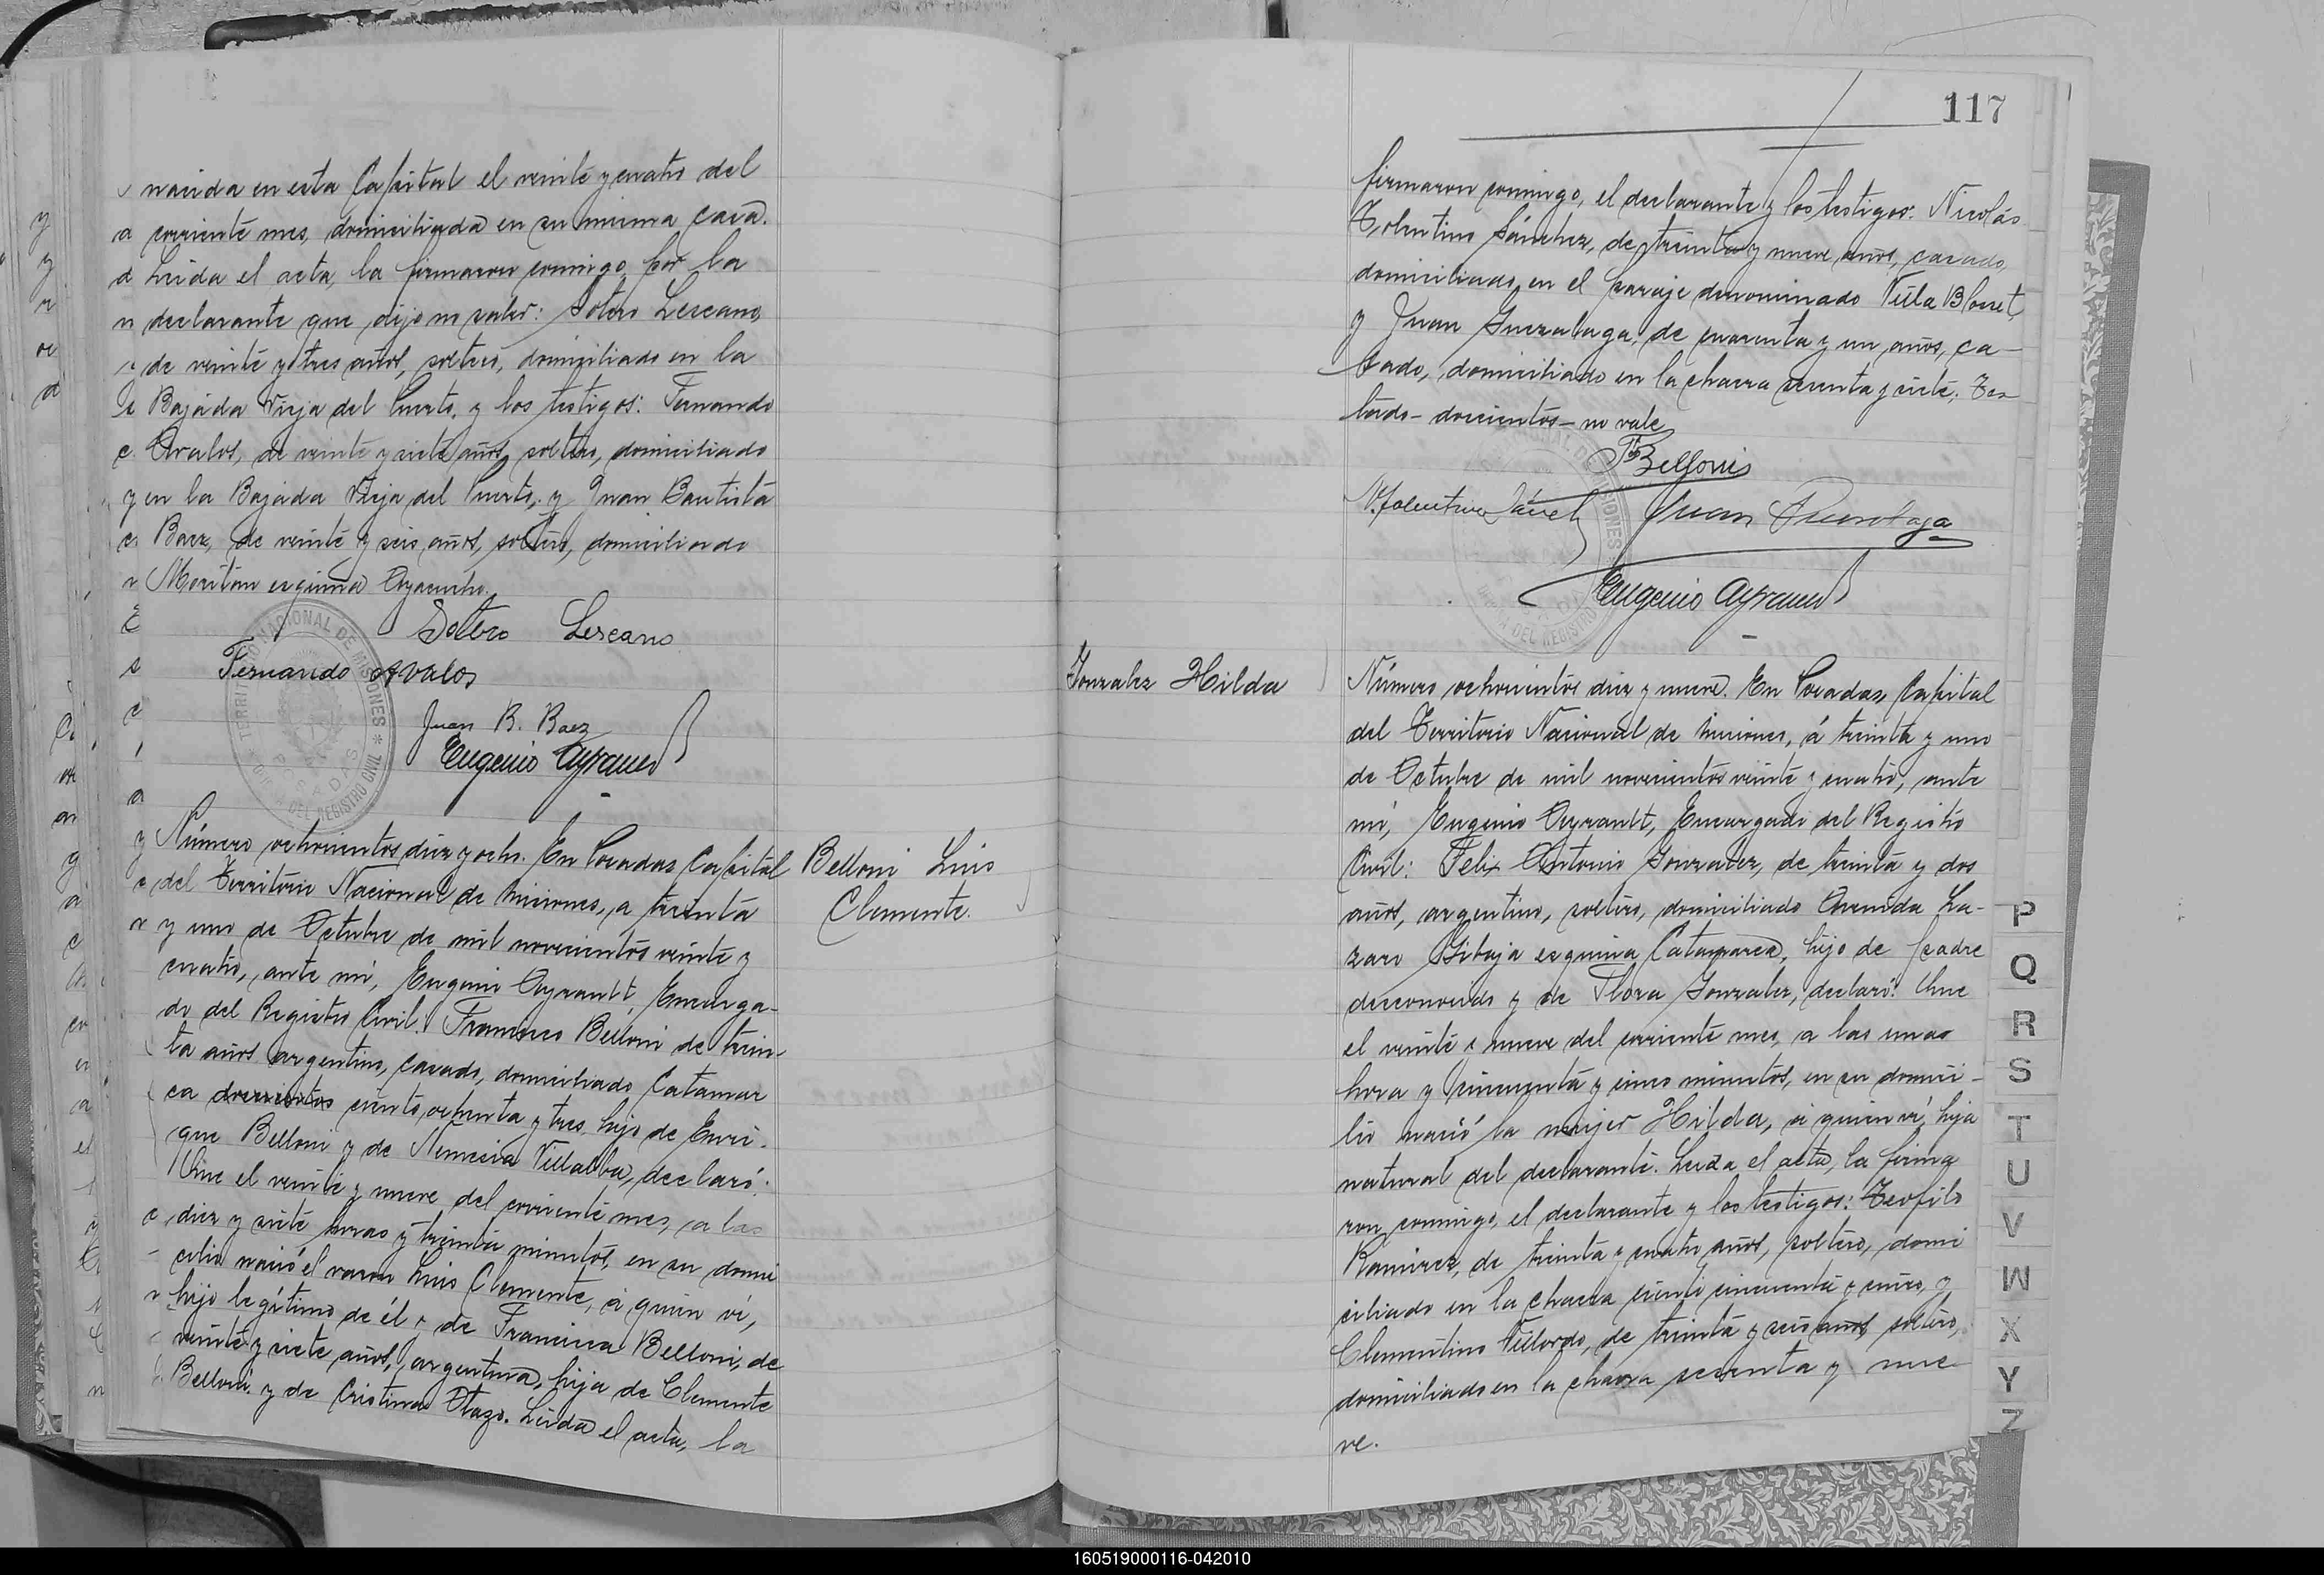 nacida en esta Capital el veinte y cuatro del
corriente mes, domiciliada en su misma casa.
Leida el acta, la firmaron conmigo, por la
declarante que dijo no saber: Sotero Lescano,
de veinte y tres años, soltero, domiciliado en la
Bajada Vieja del Puerto, y los testigos: Fernando
Avalos, de veinte y siete años, soltero, domiciliado
en la Bajada Vieja del Puerto, y Juan Bautista
Baez, de veinte y seis años, soltero, domiciliado
esquina Ayacucho.
Sotero Lescano
Fernando Avalos
Juan B. Baez
Eugenio Ayrault
TERRITORIO NACIONAL DE MISIONES
POSADAS
DEL REGISTRO CIVIL
Número ochocientos diez y ocho. En Posadas, Capital
del Territorio Nacional de Misiones, a treinta
y uno de Octubre de mil novecientos veinte y
cuatro, ante mí, Eugenio Ayrault, Encarga-
do del Registro Civil: Francisco Belloni de trein-
ta años, argentino, casado, domiciliado Catamar
ca doscientos ciento ochenta y tres, hijo de Enri-
que Belloni y de Nemesia Villalba, declaró:
Que el veinte y nueve del corriente mes, a las
diez y siete horas y treinta minutos, en su domi
cilio nació el varon Luis Clemente, a quien ví,
hijo legítimo de él y de Francisca Belloni, de
veinte y siete años, argentina, hija de Clemente
Belloni y de Cristina Otazo. Leida el acta, la
Belloni Luis
Clemente.
117
firmaron conmigo, el declarante y los testigos: Nicolás
Tolentino Sánchez, de treinta y nueve años, casado,
domiciliado en el paraje denominado Villa Blosset,
y Juan de cuarenta y un años, ca-
sado, domiciliado en la chacra sesenta y siete. Tes-
tado - doscientos - no vale
F Belloni
N. Tolentino Sánchez
Juan
Eugenio Ayrault
Gonzalez Hilda
Número ochocientos diez y nueve. En Posadas, Capital
del Territorio Nacional de Misiones, á treinta y uno
de Octubre de mil novecientos veinte y cuatro, ante
mí, Eugenio Ayrault, Encargado del Registro
Civil: Felix Antonio Gonzalez, de treinta y dos
años, argentino, soltero, domiciliado Avenida La-
zaro Gibaja esquina Catamarca, hijo de padre
desconocido y de Flora Gonzalez, declaró: Que
el veinte y nueve del corriente mes, a las unas
hora y cincuenta y cinco minutos, en su domici-
lio nació la mujer Hilda, a quien ví, hija
natural del declarante. Leida el acta, la firma
ron conmigo, el declarante y los testigos: Teofilo
Ramirez, de treinta y cuatro años, soltero, domi
ciliado en la chacra ciento cincuenta y cinco, y
Clementino Villordo, de treinta y seis años, soltero,
domiciliado en la chacra sesenta y nue-
ve.
P
Q
R
S
T
U
V
W
X
Y
Z
160519000116-042010